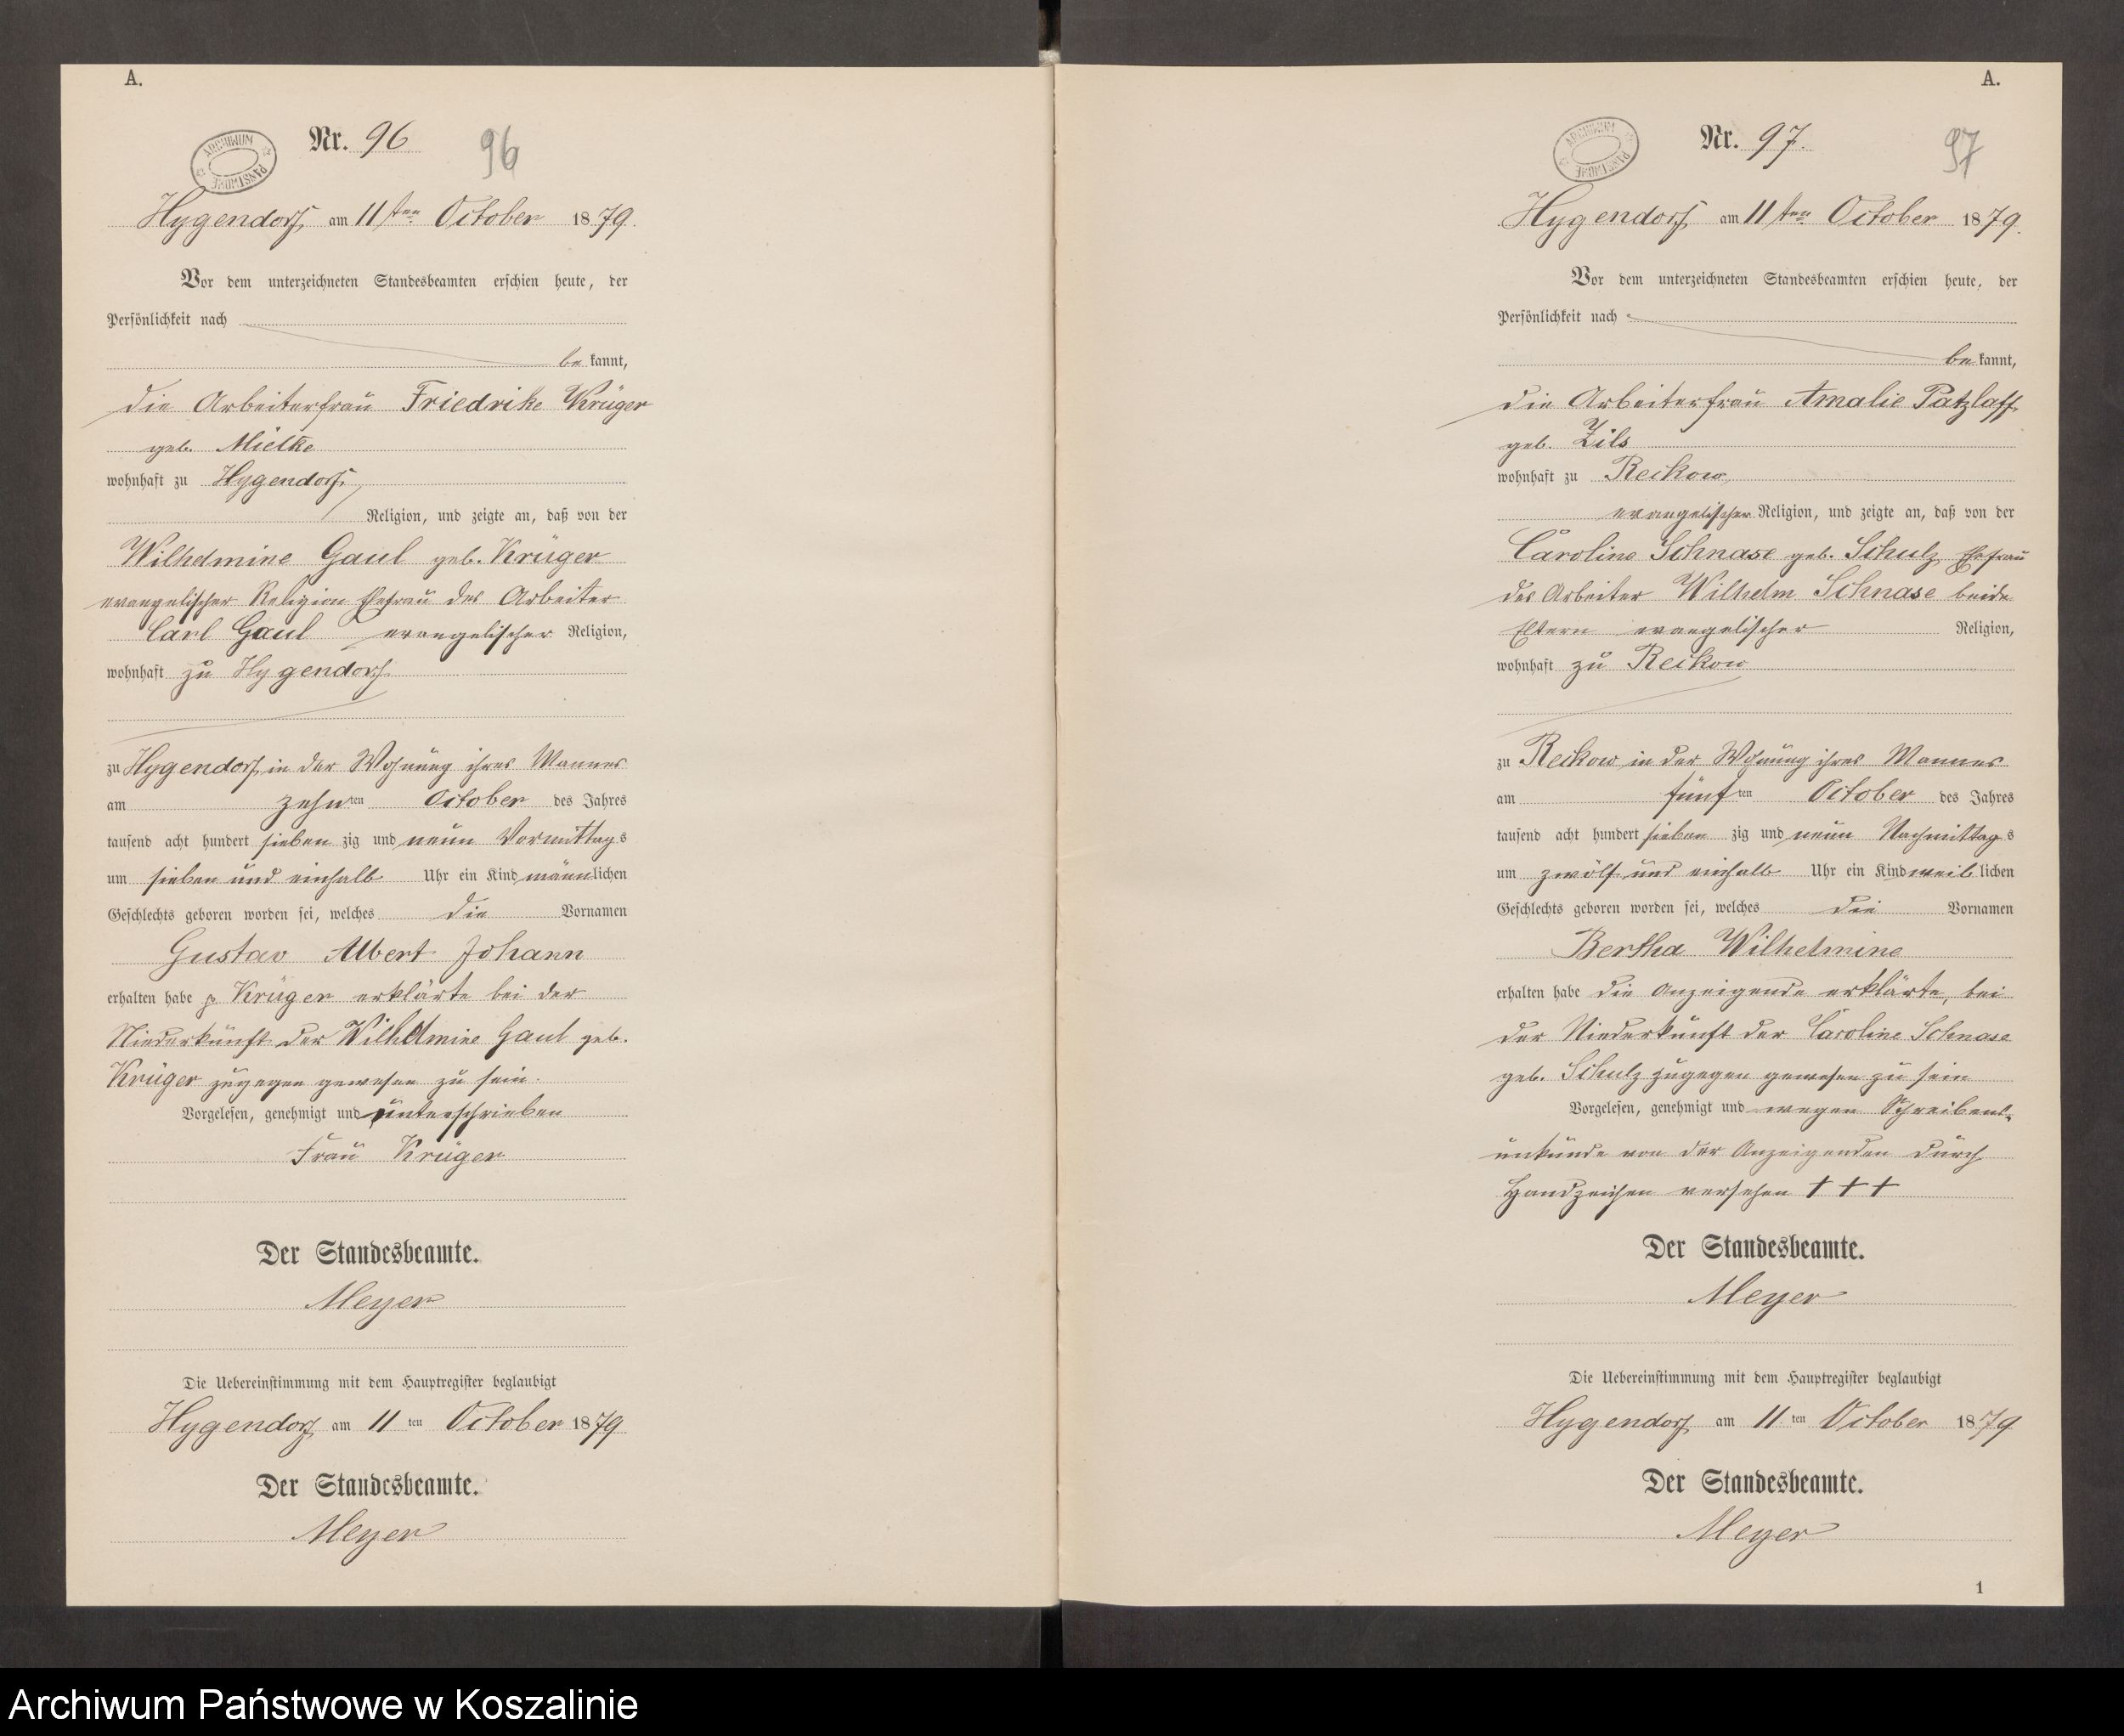 A.
Nr. 96
96
ARCHIWUM PAŃSTWOWE
Hygendorf, am 11ten October 1879.
Vor dem unterzeichneten Standesbeamten erschien heute, der
Persönlichkeit nach
be kannt,
die Arbeiterfrau Friedrike Krüger
geb. Mielke
wohnhaft zu Hygendorf,
Religion, und zeigte an, daß von der
Wilhelmine Gaul geb. Krüger
evangelischer Religion Ehefrau des Arbeiter
Carl Gaul evangelischer Religion,
wohnhaft zu Hygendorf
zu Hygendorf in der Wohnung ihres Mannes
am zehn ten October des Jahres
tausend acht hundert sieben zig und neun Vormittag s
um sieben und einhalb Uhr ein Kind männlichen
Geschlechts geboren worden sei, welches die Vornamen
Gustav Albert Johann
erhalten habe p. Krüger erklärte bei der
Niederkunft der Wilhelmine Gaul geb.
Krüger zugegen gewesen zu sein.
Vorgelesen, genehmigt und unterschrieben
Frau Krüger
Der Standesbeamte.
Meyer
Die Uebereinstimmung mit dem Hauptregister beglaubigt
Hygendorf am 11 ten October 1879
Der Standesbeamte.
Meyer
A.
Nr. 97.
97
ARCHIWUM PAŃSTWOWE
Hygendorf am 11ten October 1879.
Vor dem unterzeichneten Standesbeamten erschien heute, der
Persönlichkeit nach
be kannt,
die Arbeiterfrau Amalie Patzlaff
geb. Zils
wohnhaft zu Reckow,
evangelischer Religion, und zeigte an, daß von der
Caroline Schnase geb. Schulz Ehefrau
des Arbeiter Wilhelm Schnase beide
Eltern evangelischer Religion,
wohnhaft zu Reckow
zu Reckow in der Wohnung ihres Mannes
am fünf ten October des Jahres
tausend acht hundert sieben zig und neun Nachmittag s
um zwölf und einhalb Uhr ein Kind weib lichen
Geschlechts geboren worden sei, welches die Vornamen
Bertha Wilhelmine
erhalten habe die Anzeigende erklärte, bei
der Niederkunft der Caroline Schnase
geb. Schulz zugegen gewesen zu sein
Vorgelesen, genehmigt und wegen Schreibens-
unkunde von der Anzeigenden durch
Handzeichen versehen + + +
Der Standesbeamte.
Meyer
Die Uebereinstimmung mit dem Hauptregister beglaubigt
Hygendorf am 11 ten October 1879
Der Standesbeamte.
Meyer
1
Archiwum Państwowe w Koszalinie